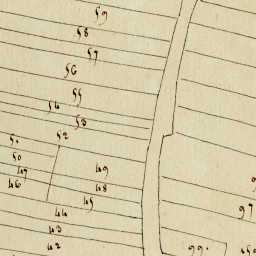 59
58
57
56
55
54
53
52
51
50
49
47
48
46
45
97
44
43
42
99.